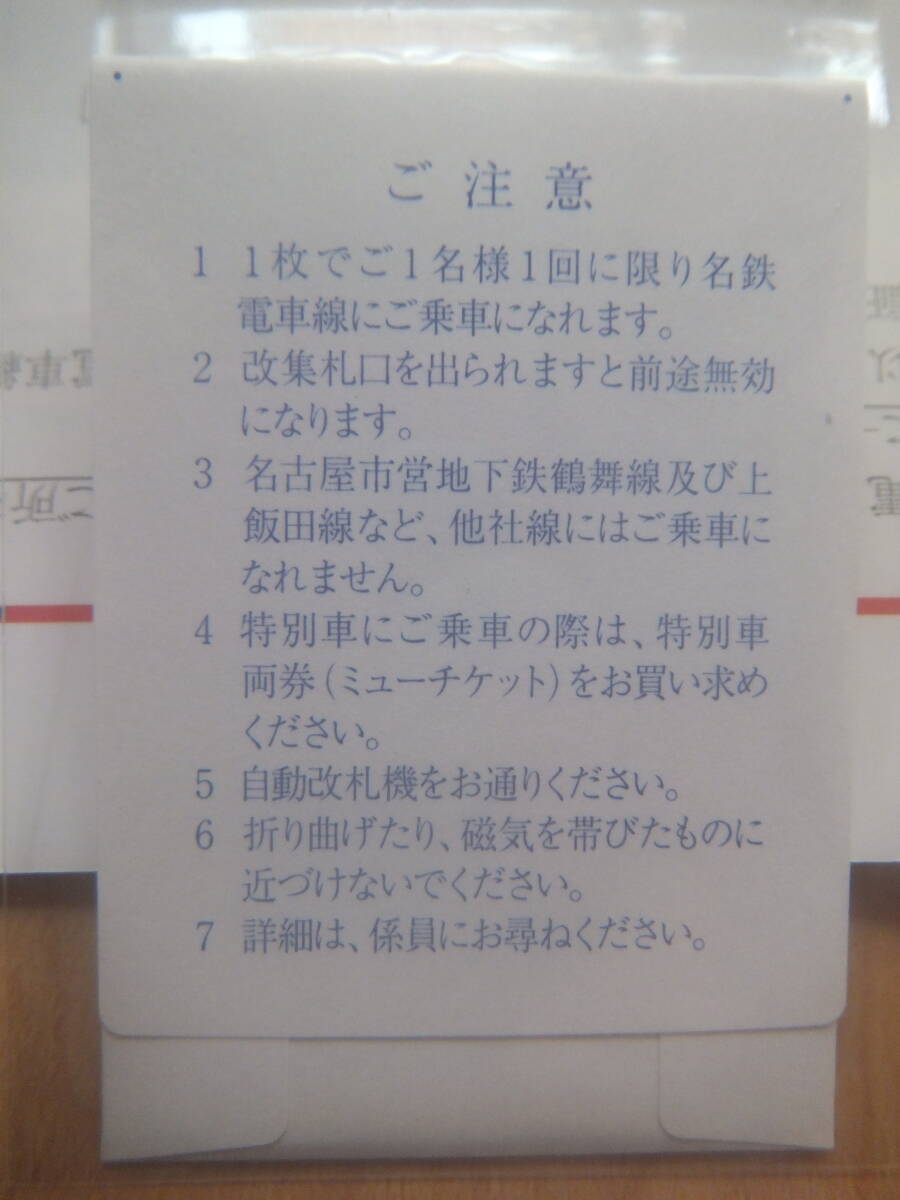 ご注意
1 1枚でご1名様1回に限り名鉄
電車線にご乗車になれます。
2 改集札口を出られますと前途無効
になります。
3 名古屋市営地下鉄鶴舞線及び上
飯田線など、他社線にはご乗車に
なれません。
4 特別車にご乗車の際は、特別車
両券(ミューチケット)をお買い求め
ください。
5 自動改札機をお通りください。
6 折り曲げたり、磁気を帯びたものに
近づけないでください。
7 詳細は、係員にお尋ねください。